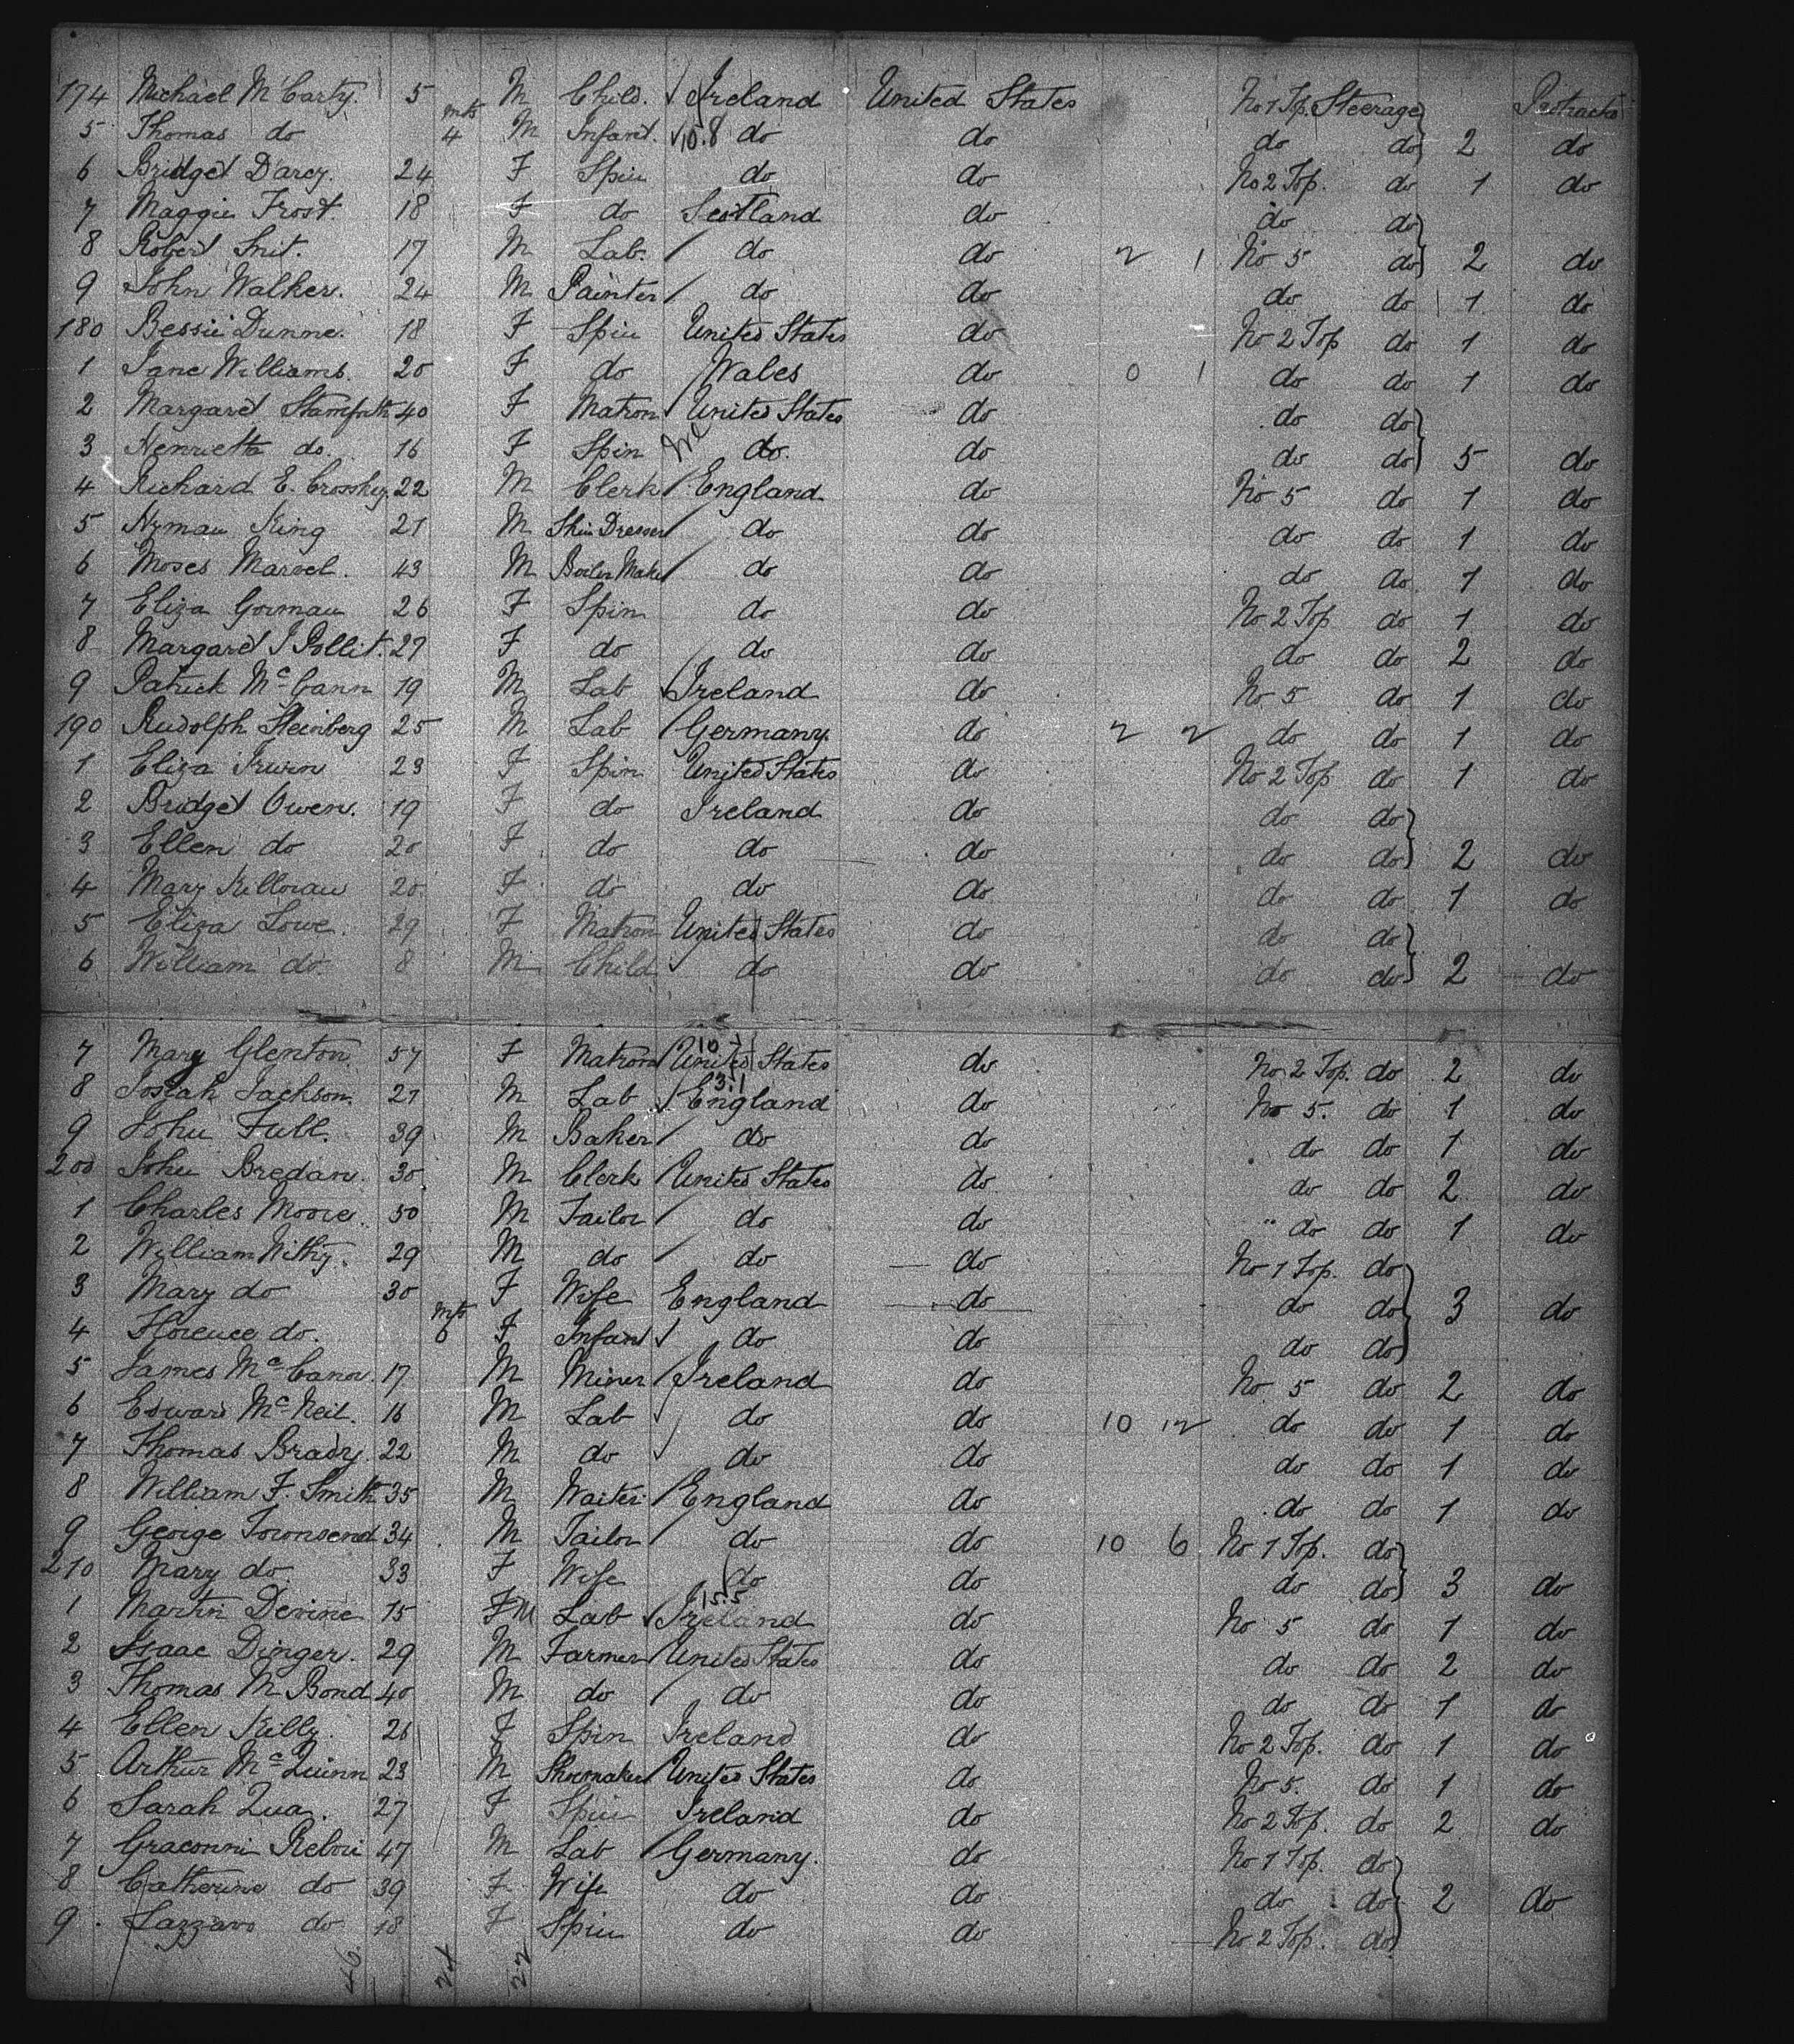 174 Michael McCarty. 5 M Child. Ireland United States No 1 Top. Steerage Protracted
5 Thomas do mts 4 M Infant. 10.8 do do do do 2 do
6 Bridget Darcy. 24 F Spin do do No 2 Top. do 1 do
7 Maggie Frost. 18 F do Scotland do do do
8 Robert Smit. 17 M Lab. do do 2 1 No 5 do 2 do
9 John Walker. 24 M Painter do do do do 1 do
180 Bessie Dunne. 18 F Spin United States do No 2 Top do 1 do
1 Jane Williams. 20 F do Wales do 0 1 do do 1 do
2 Margaret 40 F Matron United States do do do
3 Henrietta do. 16 F Spin do. do do do 5 do
4 Richard E. Crosskey 22 M Clerk England do No 5 do 1 do
5 Hyman King 21 M Skin Dresser do do do do 1 do
6 Moses Marvel. 43 M Boiler Maker do do do do 1 do
7 Eliza Gorman 26 F Spin do do No 2 Top do 1 do
8 Margaret J Pollit. 27 F do do do do do 2 do
9 Patrick McCann 19 M Lab Ireland do No 5 do 1 do
190 Rudolph Steinberg 25 M Lab Germany do 2 2 do do 1 do
1 Eliza Irwin 23 F Spin United States do No 2 Top do 1 do
2 Bridget Owen. 19 F do Ireland do do do
3 Ellen do 20 F do do do do do 2 do
4 Mary Killoran 20 F do do do do do 1 do
5 Eliza Lowe. 29 F Matron United States do do do
6 William do 8 M Child do do do do 2 do
7 Mary Glenton. 57 F Matron 10.7 United States do No 2 Top. do 2 do
8 Josiah Jackson. 27 M Lab 3.1 England do No 5. do 1 do
9 John Tubb. 39 M Baker do do do do 1 do
200 John Bredan. 30 M Clerk United States do do do 2 do
1 Charles Moore. 50 M Tailor do do do do 1 do
2 William Withy. 29 M do do do No 1 Top. do
3 Mary do 30 F Wife England do do do 3 do
4 Florence do. mts 6 F Infant do do do do
5 James McCann. 17 M Miner Ireland do No 5 do 2 do
6 Edward McNeil. 16 M Lab do do 10 12 do do 1 do
7 Thomas Brady. 22 M do do do do do 1 do
8 William F. Smith 35 M Waiter England do do do 1 do
9 George Townsend 34 M Tailor do do 10 6 No 1 Top. do
210 Mary do 33 F Wife do do do do 3 do
1 Martin Devine 15 F M Lab 15.5 Ireland do No 5 do 1 do
2 Isaac Dinger. 29 M Farmer United States do do do 2 do
3 Thomas M Bond 40 M do do do do do 1 do
4 Ellen Killy. 26 F Spin Ireland do No 2 Top. do 1 do
5 Arthur McQuinn 23 M Shoemaker United States do No 5. do 1 do
6 Sarah Qua. 27 F Spin Ireland do No 2 Top. do 2 do
7 Graconni 47 M Lab Germany. do No 1 Top. do
8 Catherine do 39 F Wife do do do do 2 do
9 Lazzaro do 18 F Spin do do No 2 Top. do
46 24 22